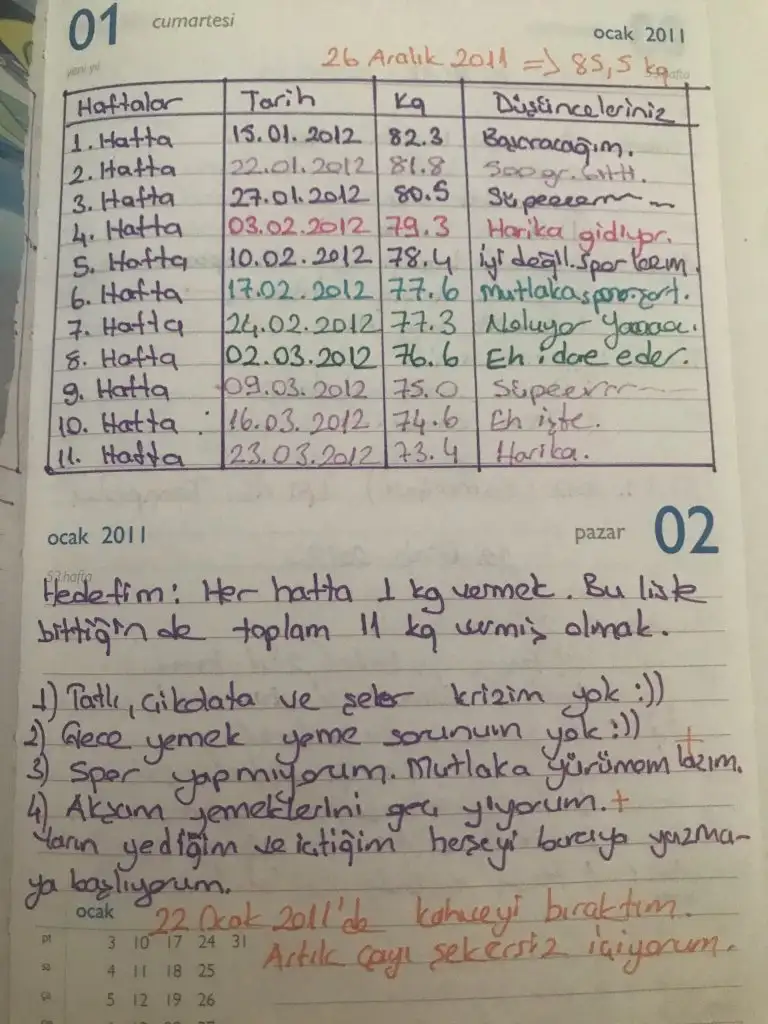 01 cumartesi ocak 2011
26 Aralık 2011 => 85,5 kg
yeni yıl
Haftalar Tarih Kg Düşünceleriniz
1. Hafta 15.01.2012 82.3 Başaracağım.
2. Hafta 22.01.2012 81.8 500 gr.
3. Hafta 27.01.2012 80.5 Süpeeerrr
4. Hafta 03.02.2012 79.3 Harika gidiyor.
5. Hafta 10.02.2012 78.4 iyi değil. Spor lazım.
6. Hafta 17.02.2012 77.6 Mutlaka spor. şart.
7. Hafta 24.02.2012 77.3 Noluyor yaaaa.
8. Hafta 02.03.2012 76.6 Eh idae eder.
9. Hafta 09.03.2012 75.0 Süpeerrr
10. Hafta 16.03.2012 74.6 Eh işte.
11. Hafta 23.03.2012 73.4 Harika.
ocak 2011 pazar 02
Hedefim: Her hafta 1 kg vermek. Bu liste
bittiğinde toplam 11 kg vermiş olmak.
1) Tatlı, çikolata ve şeker krizim yok :))
2) Gece yemek yeme sorunum yok :)) +
3) Spor yapmıyorum. Mutlaka yürümem lazım.
4) Akşam yemeklerini geç yiyorum. +
Yarın yediğim ve içtiğim herşeyi buraya yazma-
ya başlıyorum.
ocak 22 Ocak 2011'de kahveyi bıraktım.
pt 3 10 17 24 31 Artık çayı şekersiz içiyorum.
sa 4 11 18 25
ça 5 12 19 26